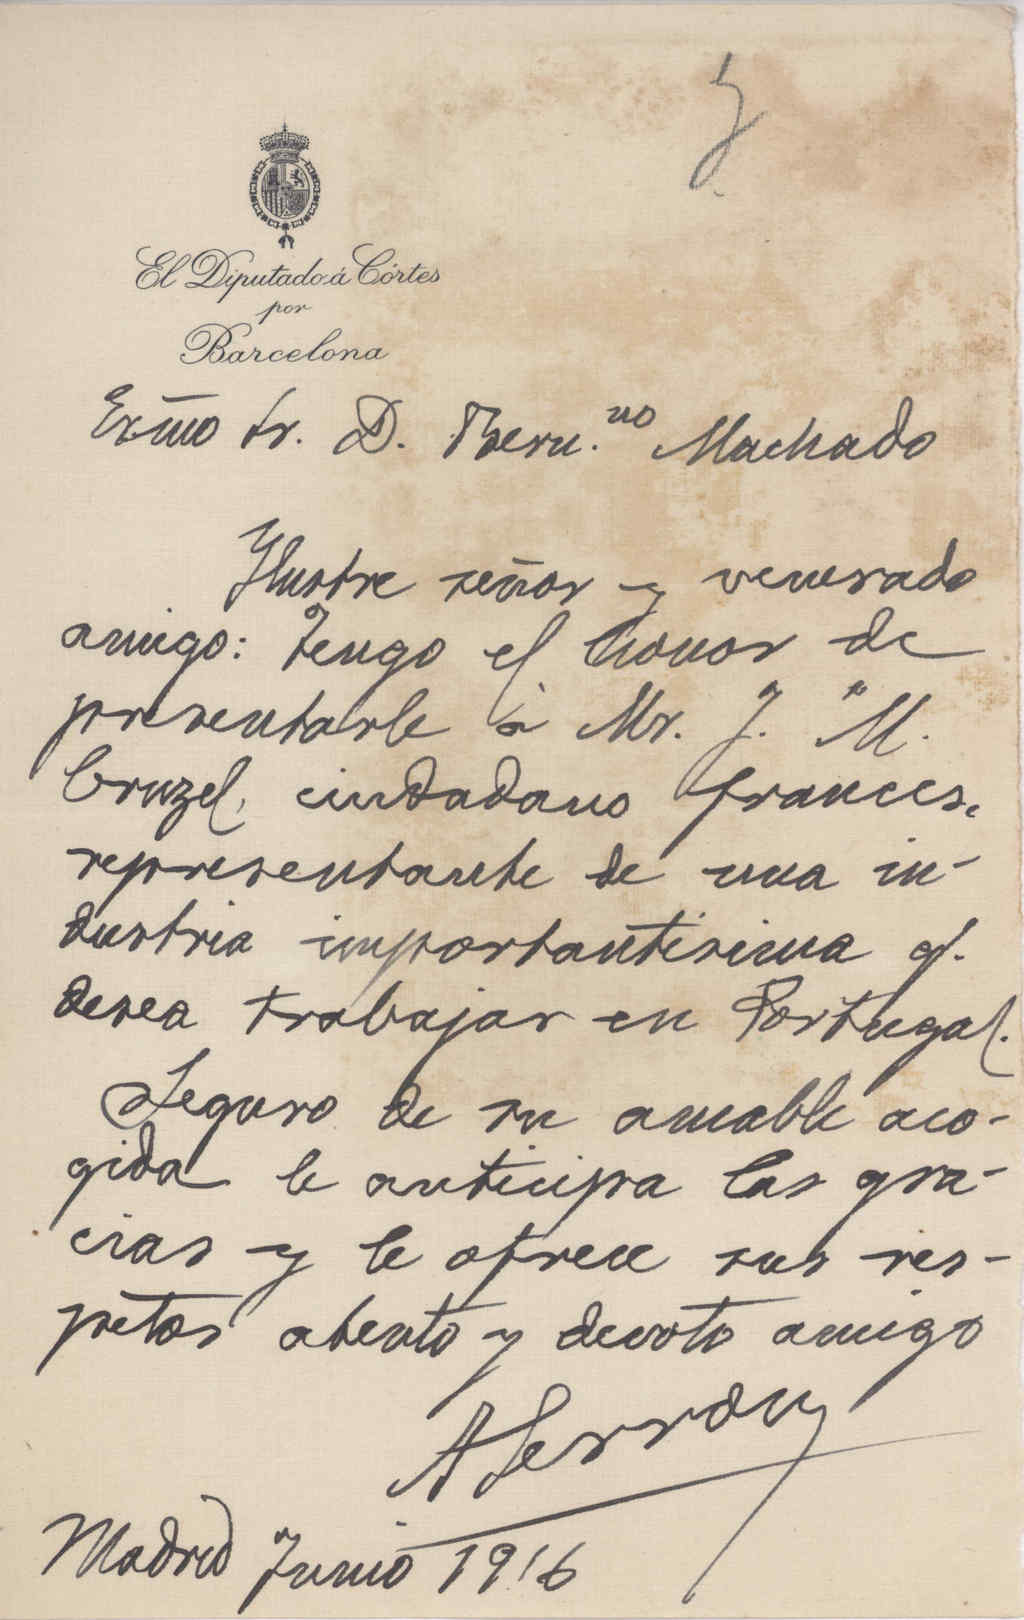 El Diputado á Córtes
por
Barcelona
Exmo Sr. D. Bern.no Machado
Ilustre señor y venerado
amigo: Tengo el honor de
presentarle a Mr. J. M.
Cruzel, ciudadano frances,
representante de una in-
dustria importantisima q.
desea trabajar en Portugal.
Seguro de su amable aco-
gida le anticipa las gra-
cias y le ofrece sus res-
petos atento y devoto amigo
Madrid Junio 1916